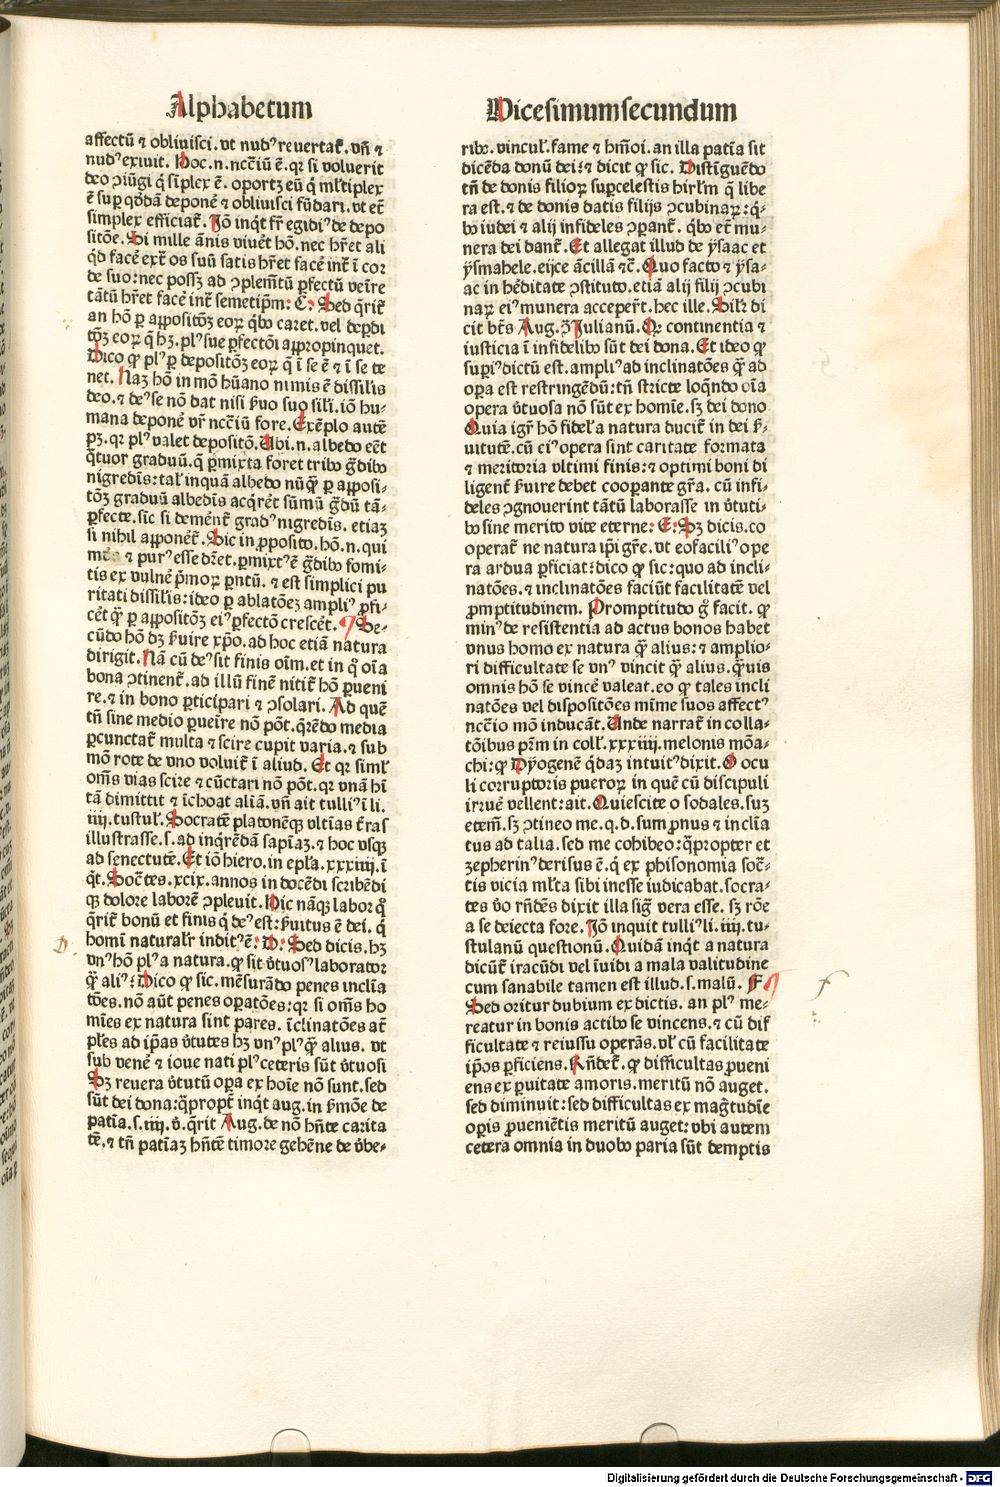 Alphabetum
affectū ⁊ obliuisci. vt nudꝰ reuertat᷑. vn̄ ⁊
nudꝰ exiuit. Hoc .n. nccīū ē. qꝛ si voluerit
deo ꝯiūgi q̇ sīplex ē. oportꝫ eū q̇ ml̄tiplex
ē sup̱ qd̄dā deponē ⁊ obliuisci fūdari. vt et̄
simplex efficiat᷑. Jō inqt̄ fr̄ egidiꝰ de depo
sitōe. Si mille ānis viuēt hō. nec hr̄et ali
qd̄ facē ext᷑ os suū satis hr̄et facē int᷑ ī cor
de suo: nec possꝫ ad ꝯplemt̄ū ꝑfectū veīre
tātū hr̄et facē int᷑ semetip̄m: C: Sed q̄rit᷑
an hō ꝑ appositōꝫ eoꝝ qb̓o caret. vel deꝑdi
tōꝫ eoꝝ q̄ hꝫ. plꝰ sue ꝑfectōi appropinquet.
Dico ꝙ plꝰ ꝑ depositōꝫ eoꝝ q̄ ī se ē ⁊ ī se te
net. Naꝫ hō in mō hūano nimis ē dissilis
deo. ⁊ deꝰ se nō dat nisi ẜuo suo sili. iō hu-
mana deponē vr̄ nccīū fore. Exēplo autē
pꝫ. qꝛ plꝰ valet depositō. Ubi .n. albedo eēt
q̄tuor graduū. q̄ ꝑmixta foret tribꝰ g̊dibꝰ
nigredīs: tal̄ inquā albedo nūq̄ ꝑ apposi-
tōꝫ graduū albedīs acq̄rēt sūmū g̊dū tā-
ꝑfecte. sic si demēnt᷑ gradꝰ nigredīs. etiaꝫ
si nihil apponēt᷑. Sic in ꝓposito. hō .n. qui
⁊ purꝰ esse dr̄et. ꝑmixtꝰ ē g̊dibꝰ fomi-
tis ex vulnē p̄moꝝ pn̄tū. ⁊ est simplici pu
ritati dissilis: ideo ꝑ ablatōeꝫ ampliꝰ ꝑfi-
cēt q̄ꝫ ꝑ appositōꝫ eiꝰ ꝑfectō crescēt. ¶ Se-
cūdo hō dꝫ ẜuire xp̄o. ad hoc etiā natura
dirigit. Nā cū deꝰ sit finis oīm. et in q̇ oīa
bona ꝯtinent᷑. ad illū finē nitit᷑ hō ꝑueni
re. ⁊ in bono ꝑticipari ⁊ ꝯsolari. Ad quē
tn̄ sine medio ꝑueīre nō pōt. q̄rēdo media
ꝑcunctat᷑ multa ⁊ scire cupit varia. ⁊ sub
mō rote de vno voluit᷑ ī aliud. Et qꝛ siml̄
om̄s vias scire ⁊ cūctari nō pōt. qꝛ vnā hī
tā dimittit ⁊ īchoat aliā. vn̄ ait tulliꝰ ī li.
iiij. tustul̄. Socratē platonēqꝫ vltīas t̄ras
illustrasse .s. ad inq̄rēdā sapīaꝫ. ⁊ hoc vsqꝫ
ad senectutē. Et iō hiero. in ep̄la .xxxiiij. ī
q̇t. Soc̄tes .xcix. annos in docēdi scribēdi
qꝫ dolore laborē ꝯpleuit. Hic nāqꝫ labor q̊
q̄rit᷑ bonū et finis q̇ deꝰ est: ẜuitus ē dei. q̄
homī naturalr̄ inditꝰ ē: D: Sed dicis. hꝫ
vnꝰ hō plꝰ a natura. ꝙ sit v̓tuosꝰ laborator
q̄ꝫ aliꝰ: Dico ꝙ sic. mēsurādo penes inclīa
tōes. nō aūt penes oꝑatōes: qꝛ si om̄s ho
mīes ex natura sint pares. īclinatōes at᷑
pl̄es ad ip̄as v̓tutes hꝫ vnꝰ plꝰ q̄ꝫ alius. vt
sub venē ⁊ ioue nati plꝰ ceteris sūt v̓tuosi
Sꝫ reuera v̓tutū oꝑa ex hoīe nō sunt. sed
sūt dei dona: q̄propt᷑ inqt̄ aug. in ẜmōe de
patīa .s. iiij. v̓. q̄rit Aug. de nō hn̄te carita
tē. ⁊ tn̄ patīaꝫ hn̄te timore gehēne de v̓be-
D.
Vicesimumsecundum
ribꝰ. vincul̄. fame ⁊ hm̄oi. an illa patīa sit
dicēda donū dei: ⁊ dicit ꝙ sic. Distīguēdo
tn̄ de donis filioꝝ suꝑcelestis hirl̄m q̄ libe
ra est. ⁊ de donis datis filijs ꝯcubinaꝝ: q̄-
bꝰ iudei ⁊ alij infideles ꝯꝑant᷑. qb̓o et̄ mu-
nera dei dant᷑. Et allegat illud de ysaac et
ysmahele. eijce ācillā ⁊c̄. Quo facto ⁊ ysa-
ac in hēditate ꝯstituto. etiā alij filij ꝯcubi
naꝝ eiꝰ munera acceper̄t. hec ille. Silr̄ di
cit bt̄s Aug. ꝯ Julianū. Qꝛ continentia ⁊
iusticia ī infidelibꝰ sūt dei dona. Et ideo ꝙ
supͥꝰ dictū est. ampliꝰ ad inclinatōes q̄ꝫ ad
oꝑa est restringēdū: tn̄ stricte loq̄ndo oīa
opera v̓tuosa nō sūt ex homīe. sꝫ dei dono
Quia igr̄ hō fidelꝰ a natura ducit᷑ in dei ẜ-
uitutē. cū eiꝰ opera sint caritate formata
⁊ meritoria vltimi finis: ⁊ optimi boni di
ligent᷑ ẜuire debet cooꝑante gr̄a. cū infi-
deles ꝯgnouerint tātū laborasse in v̓tuti-
bꝰ sine merito vite eterne: E: Sꝫ dicis. co
operat᷑ ne natura ip̄i gr̄e. vt eo faciliꝰ ope
ra ardua ꝑficiat: dico ꝙ sic: quo ad incli-
natōes. ⁊ inclinatōes faciūt facilitatē vel
ꝓmptitudinem. Promptitudo g̊ facit. ꝙ
minꝰ de resistentia ad actus bonos habet
vnus homo ex natura q̄ꝫ alius: ⁊ amplio-
ri difficultate se vnꝰ vincit q̄ꝫ alius. q̄uis
omnis hō se vincē valeat. eo ꝙ tales incli
natōes vel dispositōes mīme suos affectꝰ
nccīo mō inducāt. Unde narrat᷑ in colla-
tōibus pr̄m in coll̄. xxxiiij. melonis mōa-
chi: ꝙ Dyogenē q̄daꝫ intuitꝰ dixit. O ocu
li corruptoris pueroꝝ in quē cū discipuli
irruē vellent: ait. Quiescite o sodales. suꝫ
etem̄. sꝫ ꝯtineo me. q. d. sum ꝓnus ⁊ inclīa
tus ad talia. sed me cohibeo: q̄propter et
zepherinꝰ derisus ē. q̇ ex phisonomia soc̄-
tis vicia ml̄ta sibi inesse iudicabat. socra-
tes v̓o rn̄dēs dixit illa sig̊ vera esse. sꝫ rōe
a se deiecta fore. Jō inquit tulliꝰ li. iiij. tu-
stulanū questionū. Quidā inqt̄ a natura
dicūt᷑ iracūdi vel īuidi a mala valitudine
cum sanabile tamen est illud .s. malū. F ¶
Sed oritur dubium ex dictis. an plꝰ me-
reatur in bonis actibꝰ se vincens. ⁊ cū dif
ficultate ⁊ reiussu operās. vl̄ cū facilitate
ip̄os ꝑficiens. Rn̄det᷑. ꝙ difficultas ꝓueni
ens ex ꝑuitate amoris. meritū nō auget.
sed diminuit: sed difficultas ex mag̊tudīe
oꝑis ꝓueniētis meritū auget: vbi autem
cetera omnia in duobꝰ paria sūt demptis
f
Digitalisierung gefördert durch die Deutsche Forschungsgemeinschaft - DFG